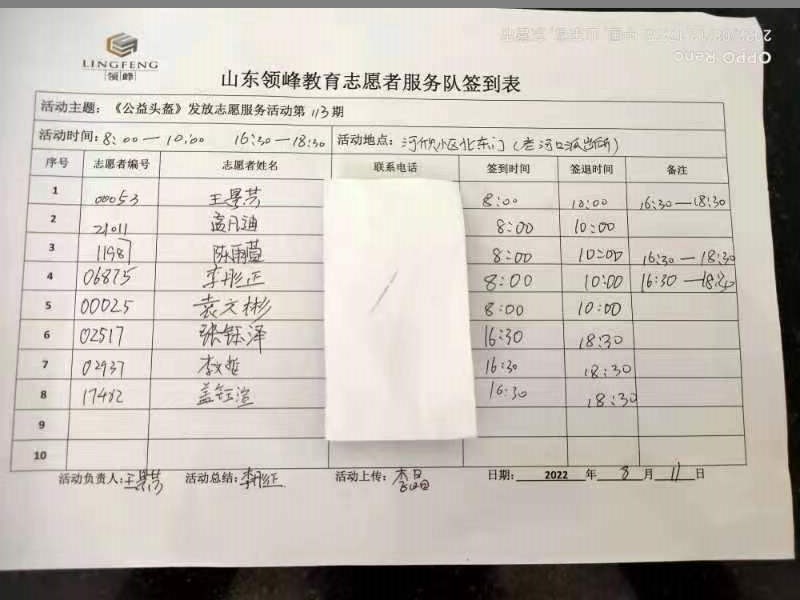 LINGFENG
领峰
OPPO Reno
山东领峰教育志愿者服务队签到表
活动主题：《公益头盔》发放志愿服务活动第 113 期
活动时间：8:00—10:00 16:30—18:30 活动地点：河欣小区北东门（老河口派出所）
序号 志愿者编号 志愿者姓名 联系电话 签到时间 签退时间 备注
1 00053 王景芬 8:00 10:00 16:30—18:30
2 21011 8:00 10:00
3 11987 陈雨萱 8:00 10:00 16:30—18:30
4 06875 李彤正 8:00 10:00 16:30—18:30
5 00025 袁文彬 8:00 10:00
6 02517 张钰泽 16:30 18:30
7 02937 李文哲 16:30 18:30
8 17482 盖钰渲 16:30 18:30
9
10
活动负责人：王景芬 活动总结：李彤正 活动上传： 日期： 2022 年 8 月 11 日